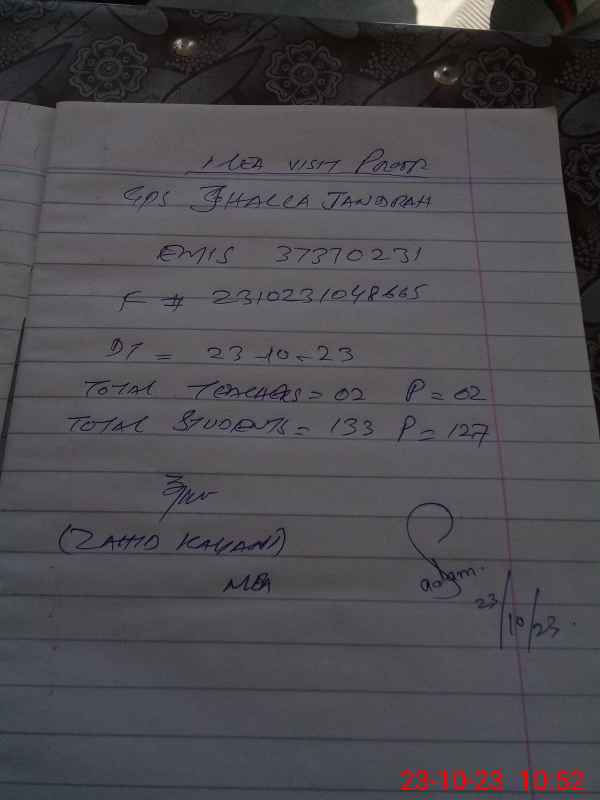 MEA VISIT PROOF
GPS JHALLA JANDRAH
EMIS 37370231
F # 2310231048665
DT = 23-10-23
TOTAL TEACHERS = 02 P = 02
TOTAL STUDENTS = 133 P = 127
(ZAHID KAYANI)
MEA
23/10/23
23-10-23 10:52